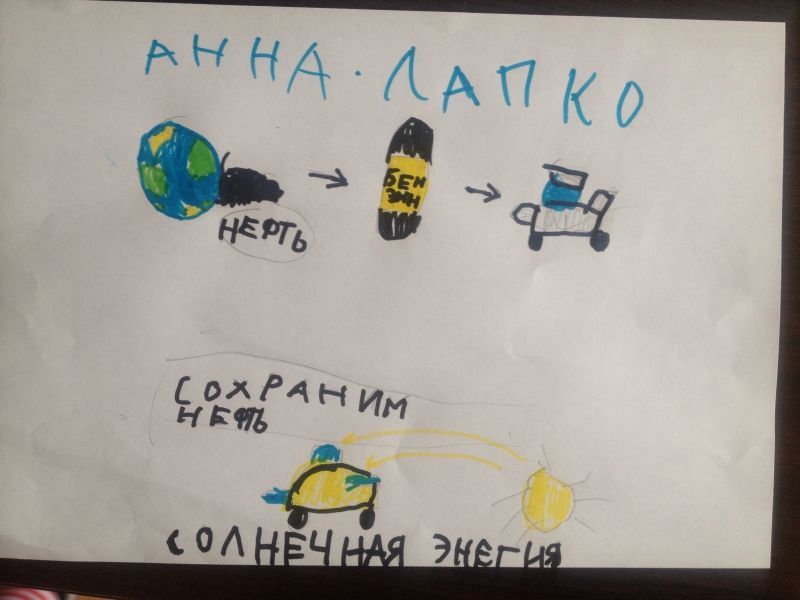 АННА · ЛАПКО
БЕН
ЗИН
НЕФТЬ
СОХРАНИМ
НЕФТЬ
СОЛНЕЧНАЯ ЭНЕГИЯ